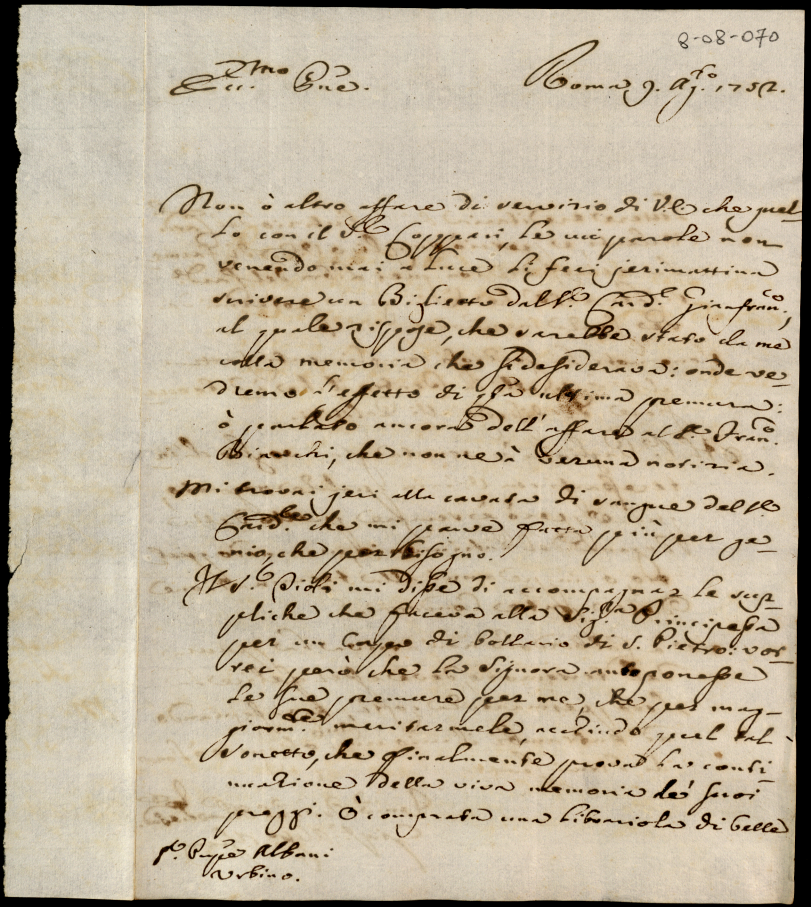 8-08-070
Ecc.mo Pne. Roma 9. Ag.to 1752.
Non ò altro affare di servizio di V.E. che quel-
lo con il Sr. Coppari, le cui parole non
venendo mai a luce li feci jerimattina
scrivere un Biglietto dal Sr. Card.l Gio:Fran.co,
al quale rispose, che sarebbe stato da me
colla memoria che si desiderava: onde ve-
dremo l'effetto di qta ultima premura:
ò parlato ancora dell'affare al Sr. Fran.co
Bianchi, che non ne à veruna notizia.
Mi trovai jeri alla cavata di sangue del Sr.
Card.le che mi parve fatta più per ge-
nio, che per bisogno.
Il Sr. Pioli mi disse di accompagnar le sup-
pliche che faceva alla Sig.ra Principessa
per un Corpo di Bollario di S. Pietro: vor-
rei però che la Signora anteponesse
le sue premure per me, che per mag-
giorm.te meritarmele, accludo quel tal
Sonetto, che finalmente prova la conti-
nuazione della viva memoria de' suoi
preggi. Ò comprata una librariola di belle
Sr. Pnpe Albani
Urbino.